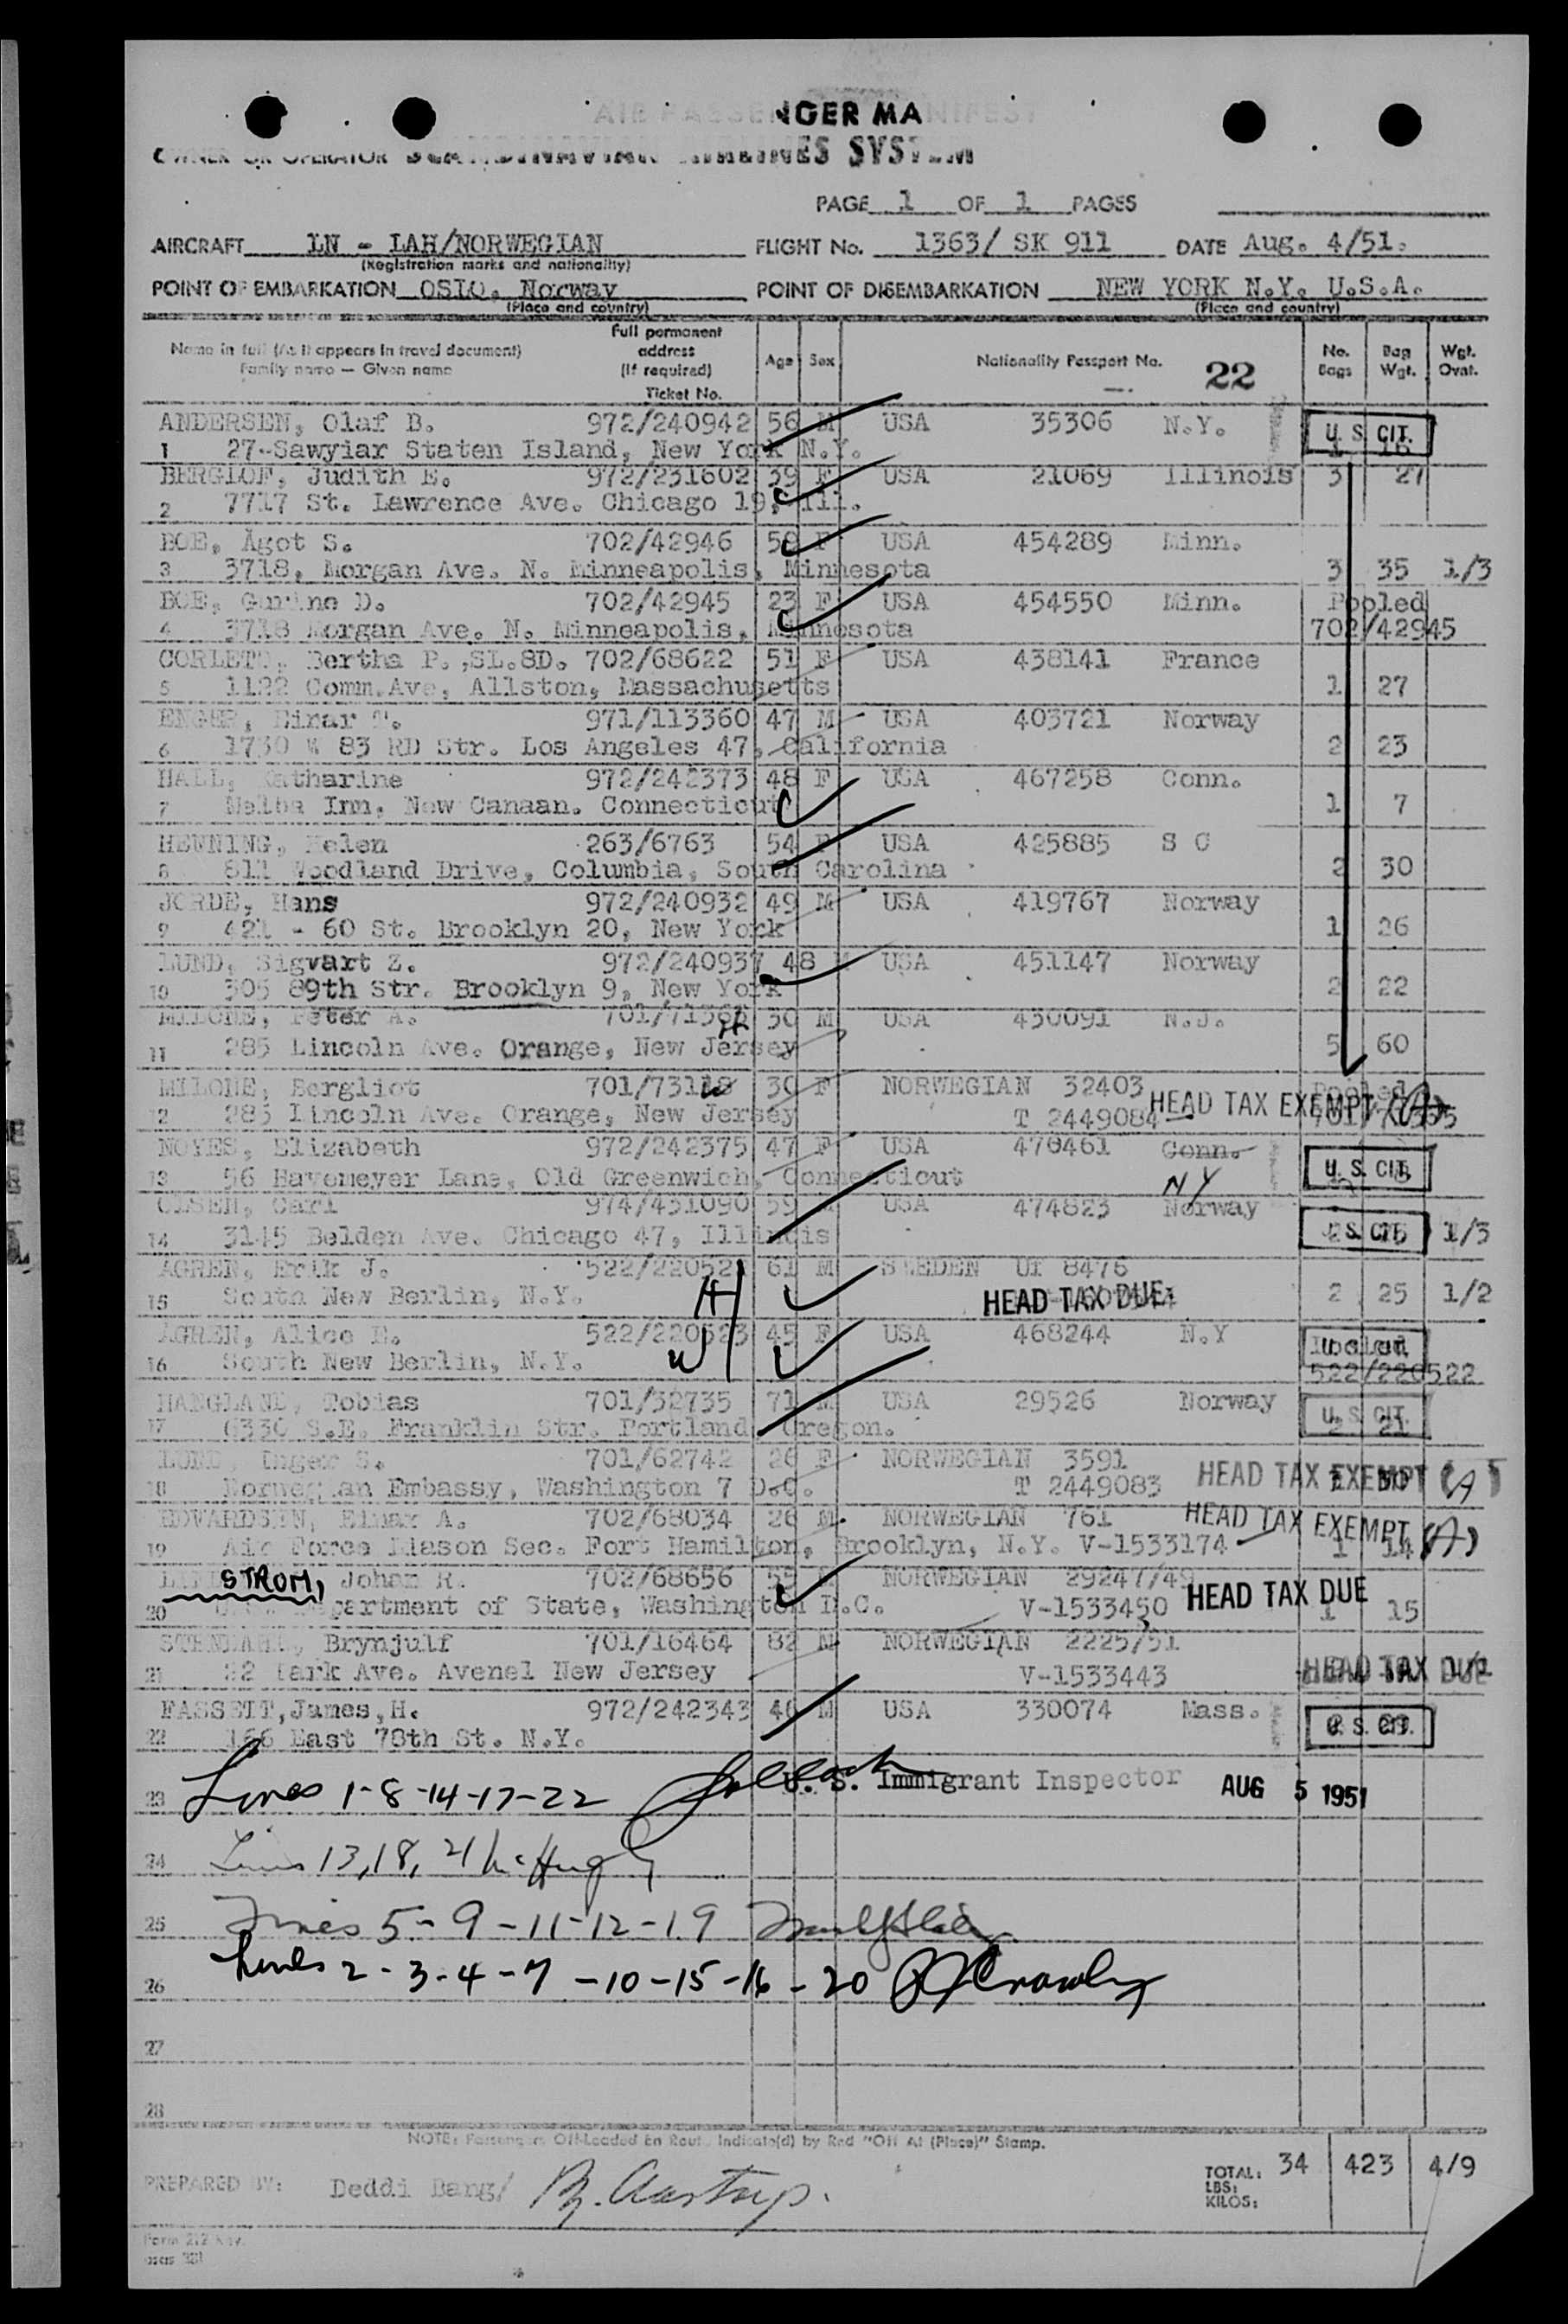 AIR PASSENGER MANIFEST
OWNER OR OPERATOR SCANDINAVIAN AIRLINES SYSTEM
PAGE 1 OF 1 PAGES
AIRCRAFT LN - LAH/NORWEGIAN FLIGHT No. 1363/ SK 911 DATE Aug. 4/51.
(Registration marks and nationality)
POINT OF EMBARKATION OSLO, Norway POINT OF DISEMBARKATION NEW YORK N.Y. U.S.A.
(Place and country) (Place and country)
Name in full (As it appears in travel document) Family name — Given name Full permanent address (If required) Ticket No. Age Sex Nationality Passport No. 22 No. Bags Bag Wgt. Wgt. Ovat.
ANDERSEN, Olaf B. 972/240942 56 M USA 35306 N.Y. U. S. CIT.
1 27-Sawyiar Staten Island, New York N.Y. 1 16
BERGLOF, Judith E. 972/231602 39 F USA 21069 Illinois 3 27
2 7717 St. Lawrence Ave. Chicago 19, Ill.
BOE, Ågot S. 702/42946 F USA 454289 Minn.
3 3718, Morgan Ave. N. Minneapolis, Minnesota 3 35 1/3
BOE, Gurine D. 702/42945 23 F USA 454550 Minn. Pooled
4 3718 Morgan Ave. N. Minneapolis, Minnesota 702/42945
Bertha P.,SL.8D. 702/68622 51 F USA 438141 France
5 1122 Comm.Ave, Allston, Massachusetts 1 27
ENGER, Einar T. 971/113360 47 M USA 403721 Norway
6 1730 W 83 RD Str. Los Angeles 47, California 2 23
HALL, Katharine 972/242373 48 F USA 467258 Conn.
7 Inn, New Canaan. Connecticut 1 7
HENNING, Helen 263/6763 54 F USA 425885 S C
8 811 Woodland Drive, Columbia, South Carolina 2 30
JORDE, Hans 972/240932 49 M USA 419767 Norway
9 421 - 60 St. Brooklyn 20, New York 1 26
LUND, Sigvart Z. 972/240937 48 M USA 451147 Norway
10 305 89th Str. Brooklyn 9, New York 2 22
MILONE, Peter A. 30 M USA 430091 N.J.
H
11 285 Lincoln Ave. Orange, New Jersey 5 60
MILONE, Bergliot 30 F NORWEGIAN 32403 Pooled
W
12 285 Lincoln Ave. Orange, New Jersey T 2449084 HEAD TAX EXEMPT (A)
NOYES, Elizabeth 972/242375 47 F USA 470461 Conn. U. S. CIT.
13 56 Havemeyer Lane, Old Greenwich, Connecticut NY
OLSEN, Carl 974/431090 59 M USA 474823 Norway U. S. CIT.
14 3145 Belden Ave. Chicago 47, Illinois 1/3
AGREN, Erik J. 522/220522 61 M SWEDEN UT 8476
H
15 South New Berlin, N.Y. HEAD TAX DUE 2 25 1/2
AGREN, Alice E. 522/220523 45 F USA 468244 N.Y Pooled
W
16 South New Berlin, N.Y. 522/220522
HANGLAND, Tobias 701/32735 71 M USA 29526 Norway U. S. CIT.
17 6330 S.E. Franklin Str. Portland, Oregon. 2 21
Inger S. 701/62742 26 F NORWEGIAN 3591
18 Norwegian Embassy, Washington 7 D.C. T 2449083 HEAD TAX EXEMPT (A)
EDVARDSEN, Einar A. 702/68034 26 M NORWEGIAN 761 HEAD TAX EXEMPT (A)
19 Air Force Liason Sec. Fort Hamilton, Brooklyn, N.Y. V-1533174 1 14
STROM, Johan R. 702/68656 55 M NORWEGIAN 29247/49
20 Department of State, Washington D.C. V-1533450 HEAD TAX DUE 1 15
Brynjulf 701/16464 82 M NORWEGIAN 2225/51
21 Park Ave. Avenel New Jersey V-1533443 HEAD TAX DUE
FASSETT,James,H. 972/242343 46 M USA 330074 Mass. U. S. CIT.
22 166 East 78th St. N.Y.
23 Lines 1-8-14-17-22 U. S. Immigrant Inspector AUG 5 1951
24 Lines 13,18, 21 McHugh
25 Lines 5-9-11-12-19
26 Lines 2-3-4-7-10-15-16-20
27
28
NOTE: Passengers Off-Loaded En Route Indicate(d) by Red "Off At (Place)" Stamp.
PREPARED BY: Deddi Bang/ TOTAL: 34 423 4/9
LBS:
KILOS:
Form 212 Rev.